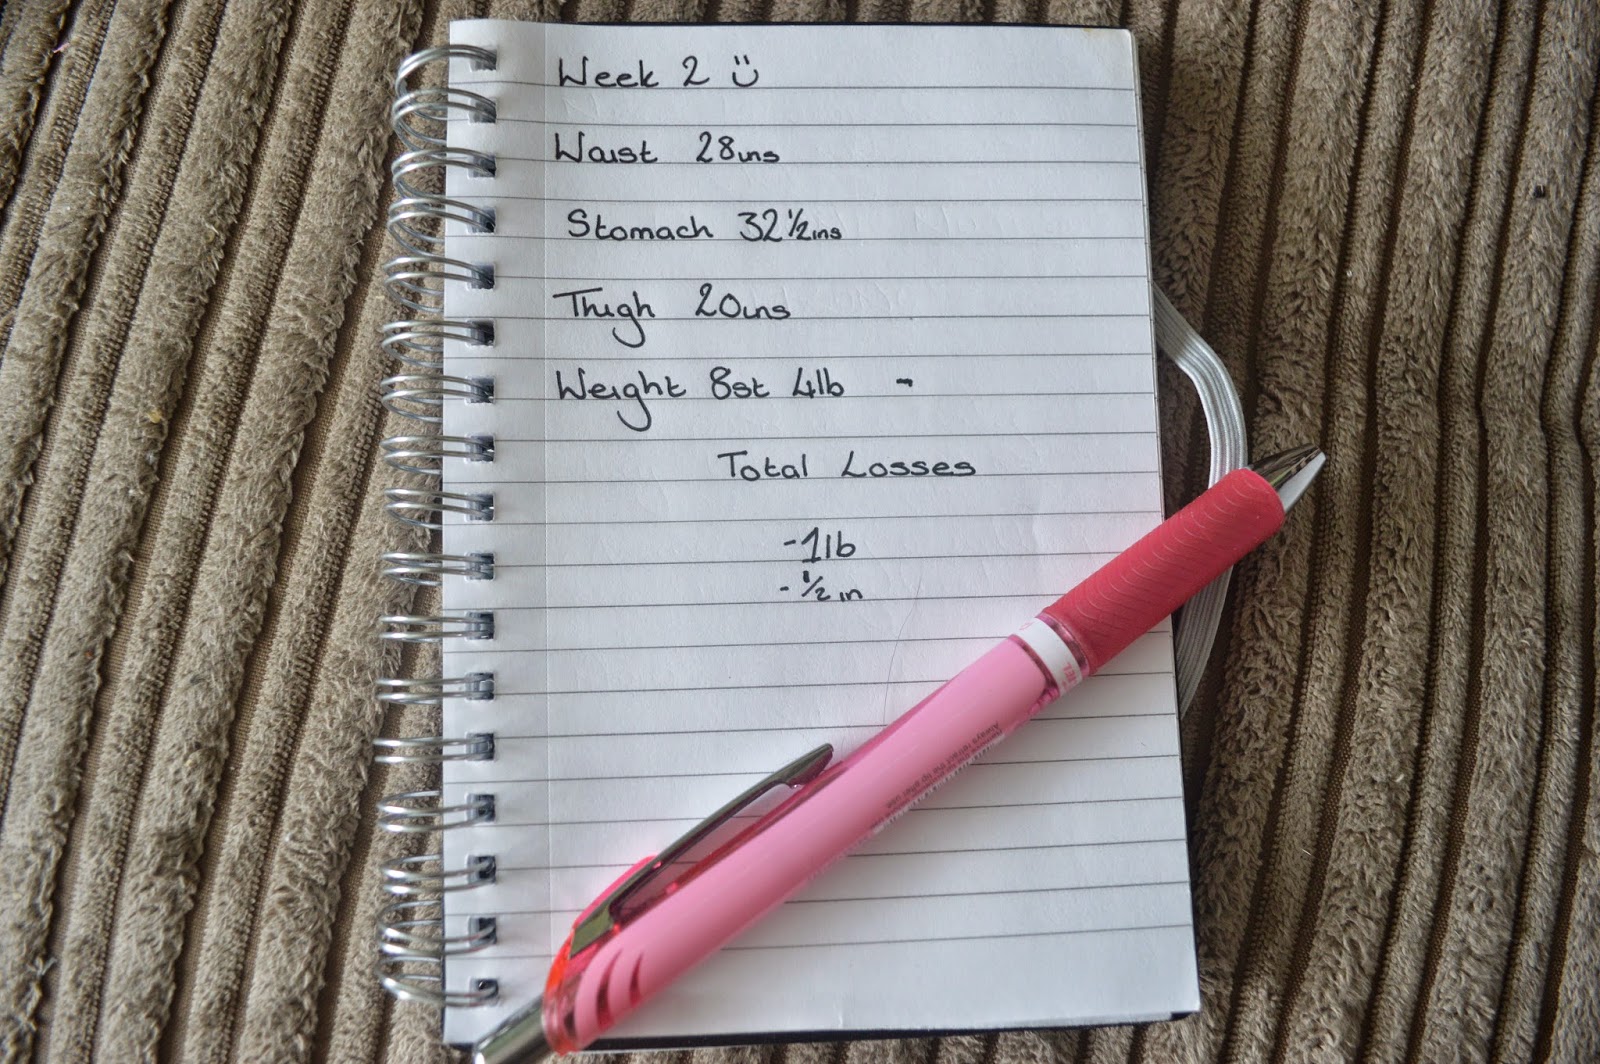 Week 2 ü
Waist 28ins
Stomach 32½ins
Thigh 20ins
Weight 8st 4lb -
Total Losses
-1lb
-½in